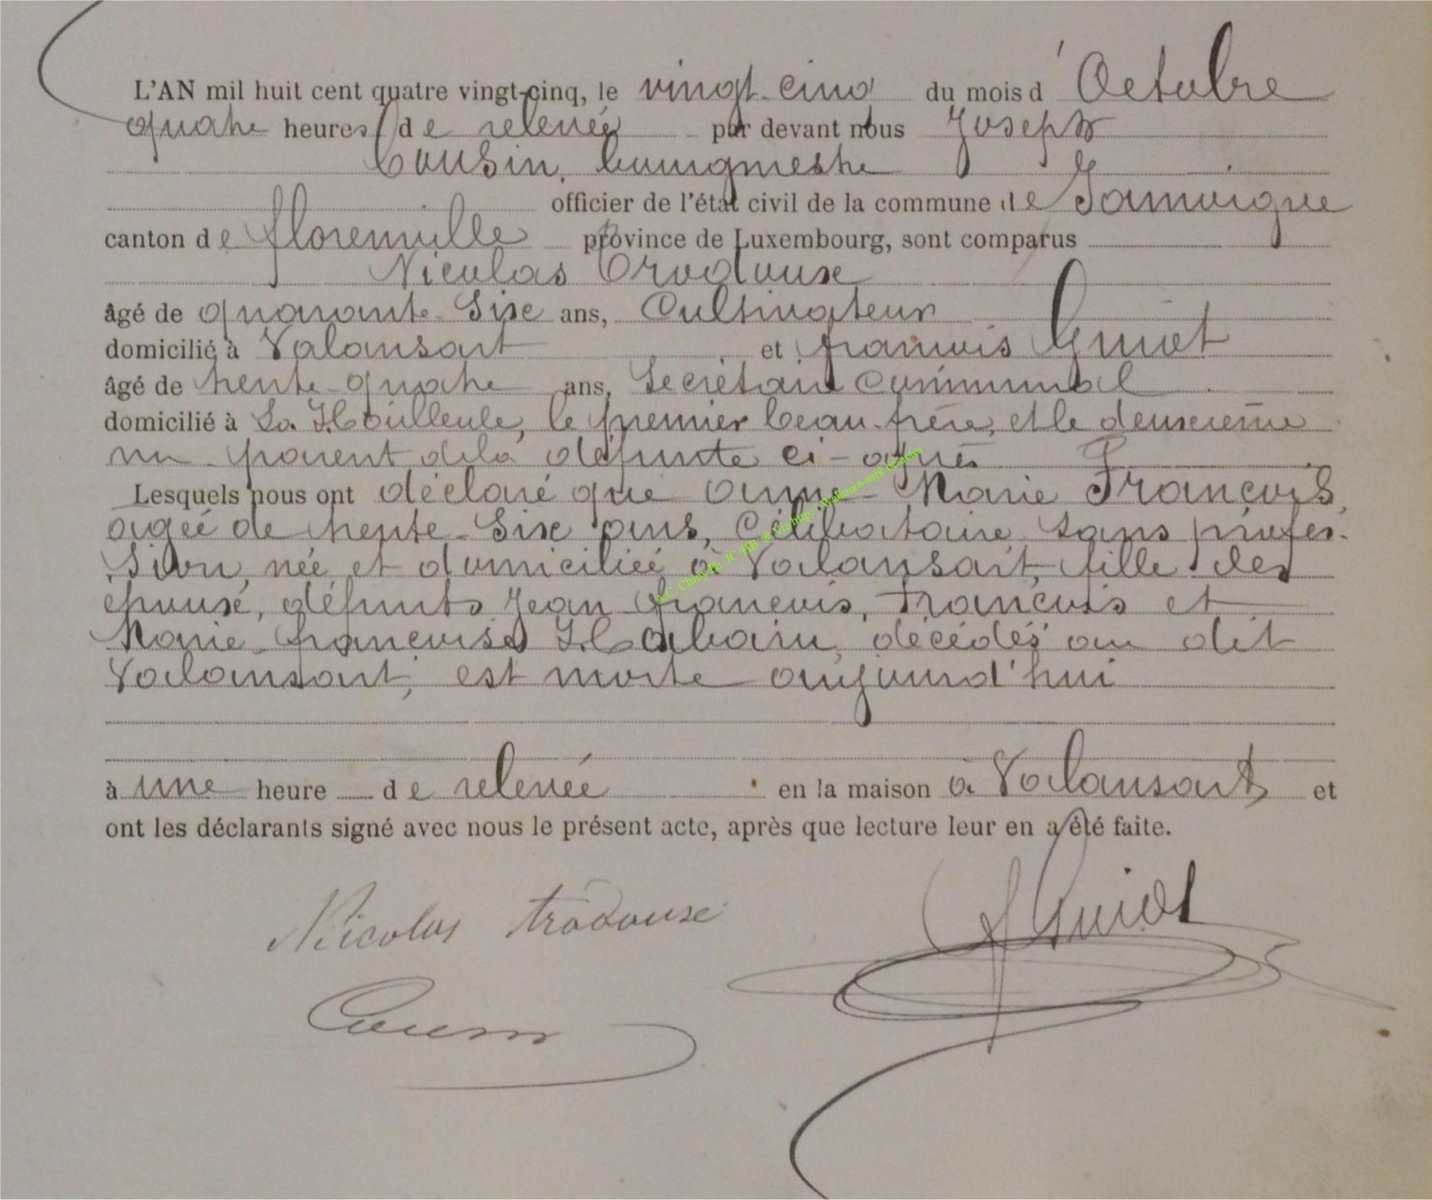 L'AN mil huit cent quatre vingt-cinq, le vingt-cinq du mois d'Octobre
quatre heures de relevée par devant nous Joseph
Cousin, bourgmestre
officier de l'état civil de la commune de Jamoigne
canton de florenville province de Luxembourg, sont comparus
Nicolas Trodoux
âgé de quarante-six ans, Cultivateur
domicilié à Valansart et françois Guiot
âgé de trente-quatre ans, Secrétaire communal
domicilié à La Hailleule, le premier beau-frère, et le deuxième
un parent de la défunte ci-après
Lesquels nous ont déclaré que Anne-Marie François,
agée de trente-six ans, Célibataire sans profes-
sion, née et domiciliée à Valansart, fille des
épousé, défunts Jean françois, François et
Marie-françoise Habain, décédés au dit
Valansart, est morte aujourd'hui
à une heure de relevée en la maison à Valansart, et
ont les déclarants signé avec nous le présent acte, après que lecture leur en a été faite.
Nicolas trodoux
f Guiot
Cousin